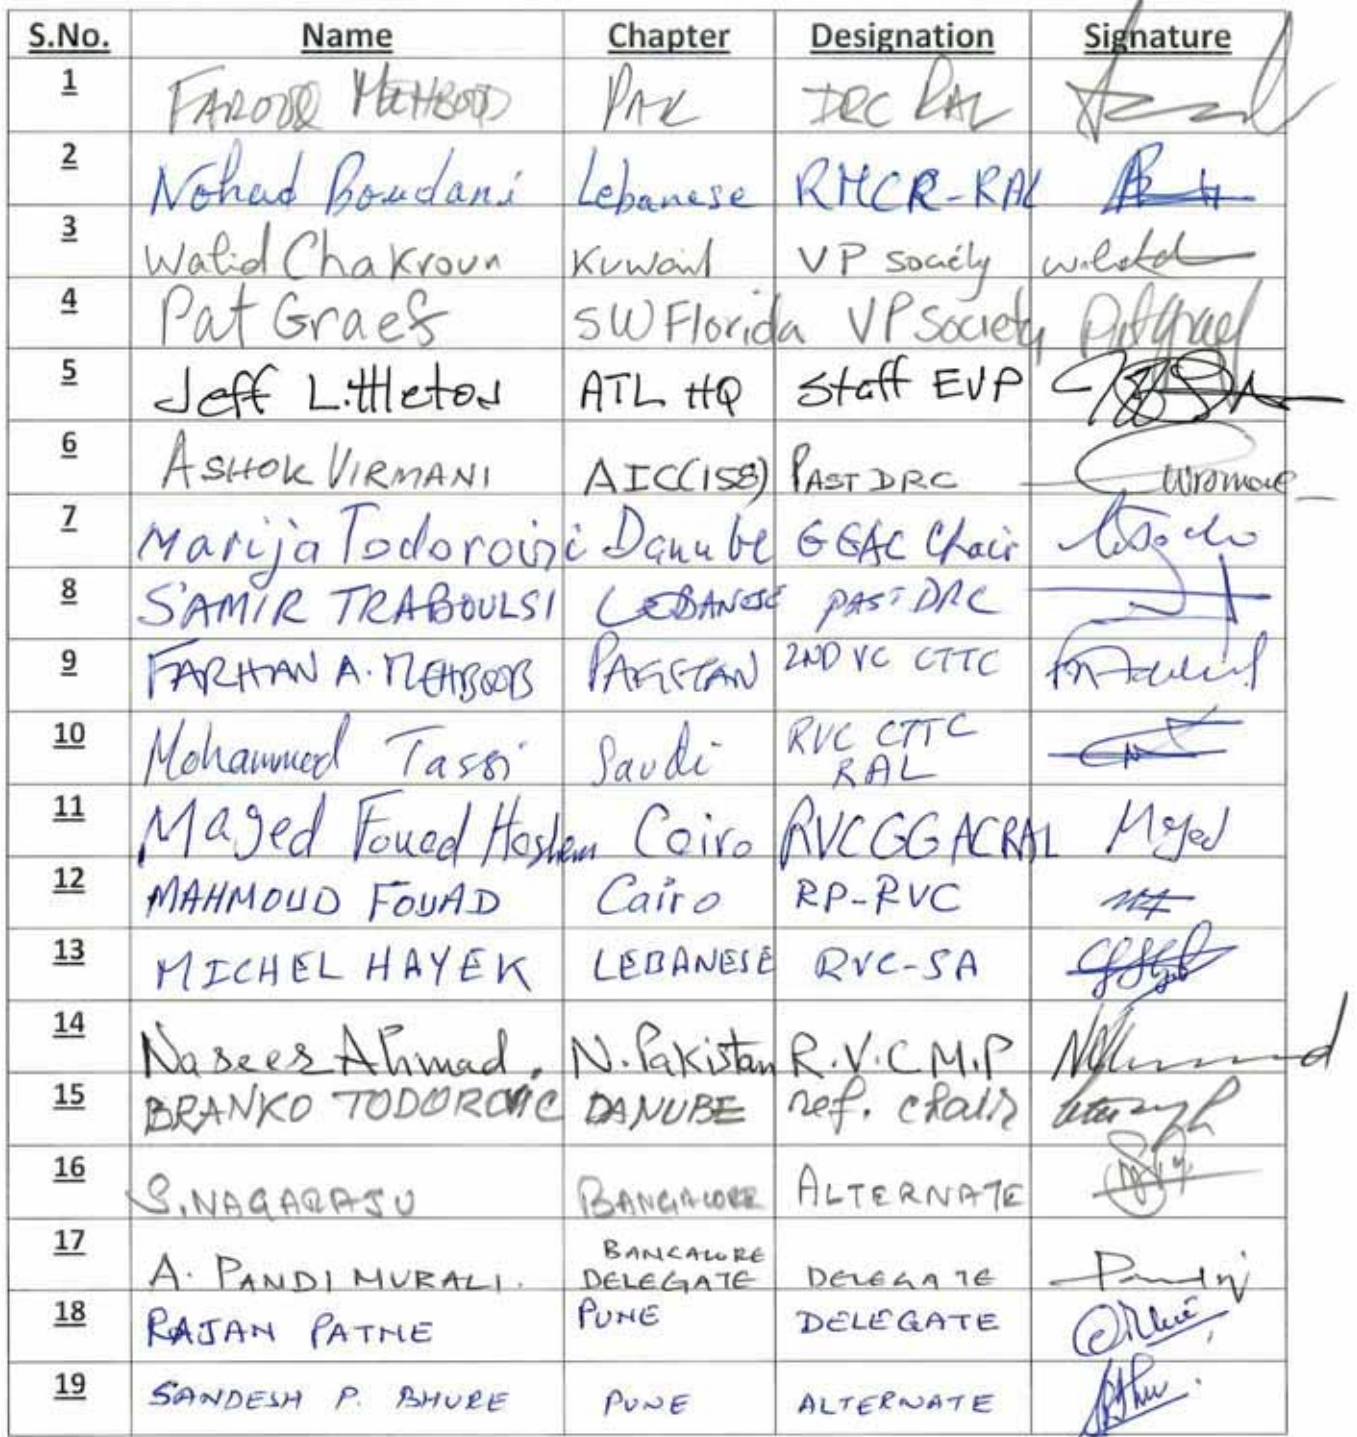 S.No. Name Chapter Designation Signature
1 FAROOQ MEHBOOB PAK DRC RAL
2 Nohad Boudani Lebanese RMCR-RAL
3 Walid Chakroun Kuwait VP society
4 Pat Graef SW Florida VP Society Pat Graef
5 Jeff Littleton ATL HQ Staff EVP
6 ASHOK VIRMANI AIC(158) PAST DRC
7 Marija Todorovic Danube GGAC Chair
8 SAMIR TRABOULSI LEBANESE PAST DRC
9 FARHAN A. MEHBOOB PAKISTAN 2ND VC CTTC
10 Mohammed Tassi Saudi RVC CTTC
RAL
11 Maged Fouad Hashem Cairo RVC GGAC RAL Maged
12 MAHMOUD FOUAD Cairo RP-RVC
13 MICHEL HAYEK LEBANESE RVC-SA
14 Naseer Ahmad. N. Pakistan R.V.C.M.P
15 BRANKO TODOROVIC DANUBE ref. chair
16 S. NAGARAJU BANGALORE ALTERNATE
17 A. PANDI MURALI. BANGALORE
DELEGATE DELEGATE
18 RAJAN PATNE PUNE DELEGATE
19 SANDESH P. BHURE PUNE ALTERNATE